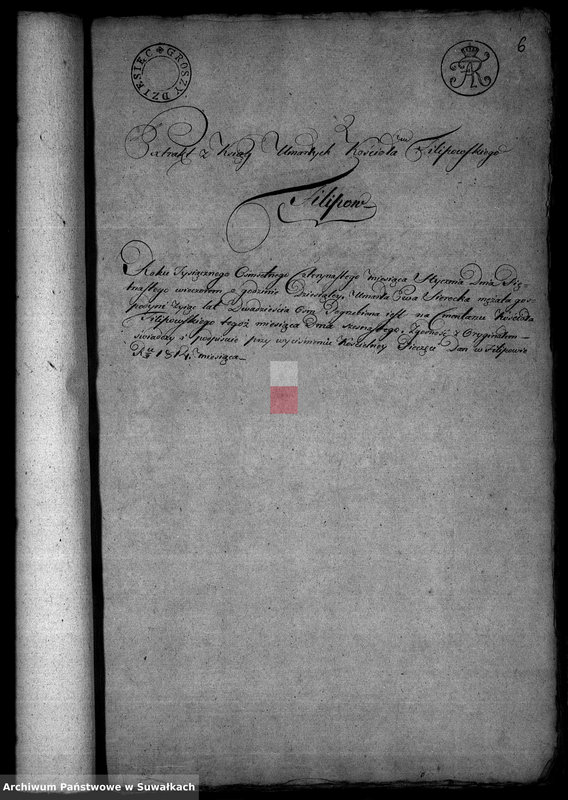 6
DZIESIĘC GROSZY
Extrakt z Xięgi Umarłych Kościoła Filipowskiego
Filipow
Roku Tysiącznego Osmsetnego Czternastego miesiąca Stycznia Dnia Pię-
tnastego wieczorem o godzinie Dziesiątey, Umarła Ewa Sierocka mężata gos-
podyni żyiąc lat Dwadzieścia Osm Pogrzebiona iest na Cmentarzu Kościoła
Filipowskiego tegoż miesiąca Dnia szesnastego. Zgodność z Oryginałem
świadczę z podpisem przy wyciśnieniu Kościelney Pieczęci Dan w Filipowie
R. 1814. miesiąca
Archiwum Państwowe w Suwałkach